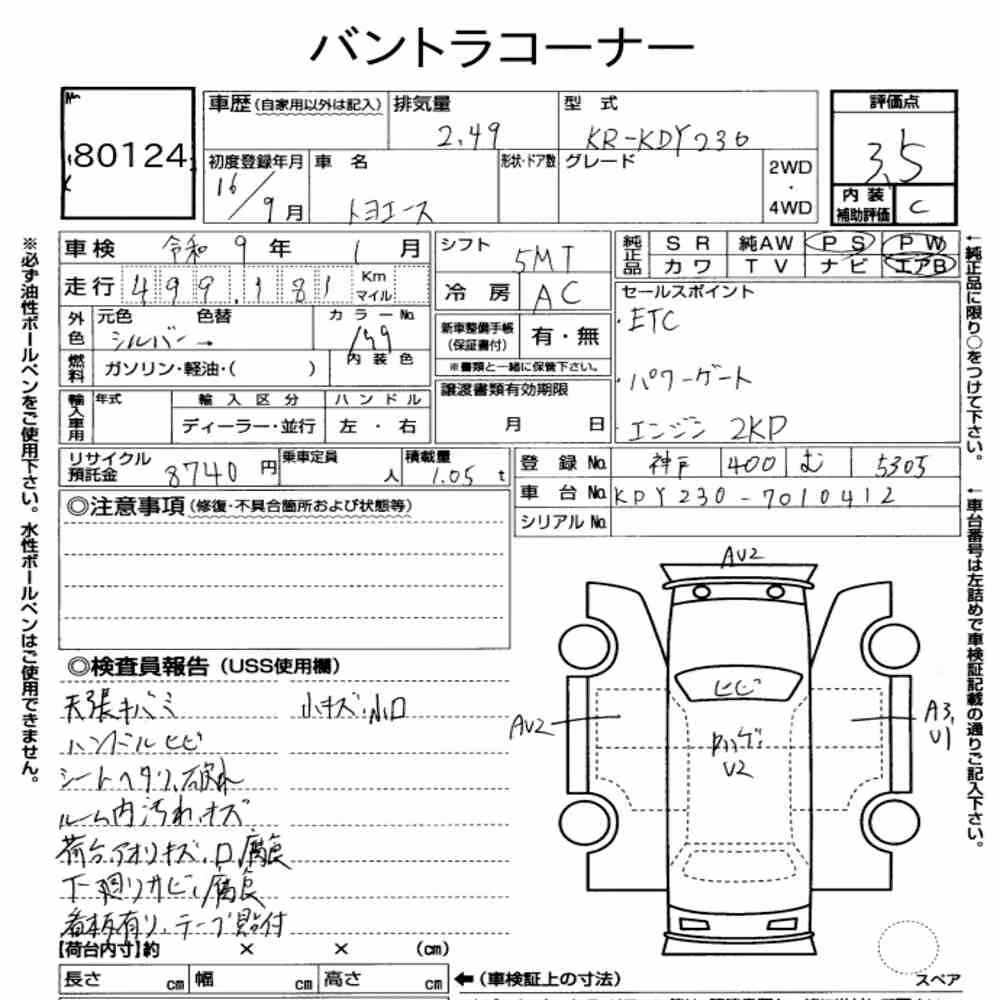 バントラコーナー
80124
車歴(自家用以外は記入) 排気量 2.49 型 式 KR-KDY230
評価点 3.5
内装補助評価 C
初度登録年月 16/9月 車 名 トヨエース 形状・ドア数 グレード 2WD・4WD
車検 令和 9 年 1 月
走行 499,181 Km マイル
外色 元色 シルバー→ 色替 カラーNo. 199
内装色
燃料 ガソリン・軽油・( )
輸入車用 年式 輸入区分 ハンドル
ディーラー・並行 左・右
シフト 5MT
冷房 AC
新車整備手帳(保証書付) 有・無
※書類と一緒に保管下さい。
譲渡書類有効期限
月 日
純正品 SR 純AW PS PW
カワ TV ナビ エアB
セールスポイント
・ETC
・パワーゲート
エンジン 2KD
リサイクル預託金 8740 円 乗車定員 人 積載量 1.05 t
登録No. 神戸 400 む 5305
車台No. KDY230-7010412
シリアルNo.
◎注意事項(修復・不具合箇所および状態等)
◎検査員報告(USS使用欄)
天張キバミ 小キズ.凹
ハンドルヒビ
シートヘタリ.破れ
ルーム内汚れ.キズ
荷台.アオリキズ.凹.腐食
下廻りサビ.腐食
看板有り.テープ貼付
【荷台内寸】約 × × (cm)
長さ cm 幅 cm 高さ cm ←(車検証上の寸法)
AU2
ヒビ
AU2
ハゲ
U2
A3.
U1
スペア
※必ず油性ボールペンをご使用下さい。水性ボールペンはご使用できません。
←純正品に限り○をつけて下さい。
←車台番号は左詰めで車検証記載の通りご記入下さい。